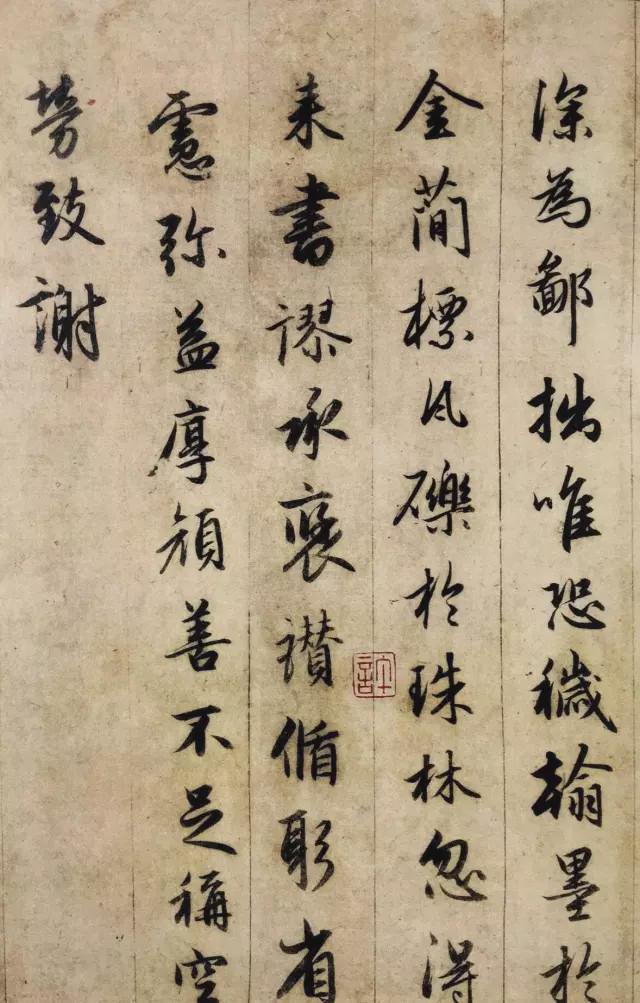 深為鄙拙唯恐穢翰墨於
金簡標瓦礫於珠林忽得
来書謬承褒讃循躬省
慮弥益厚顏善不足稱空
勞致謝